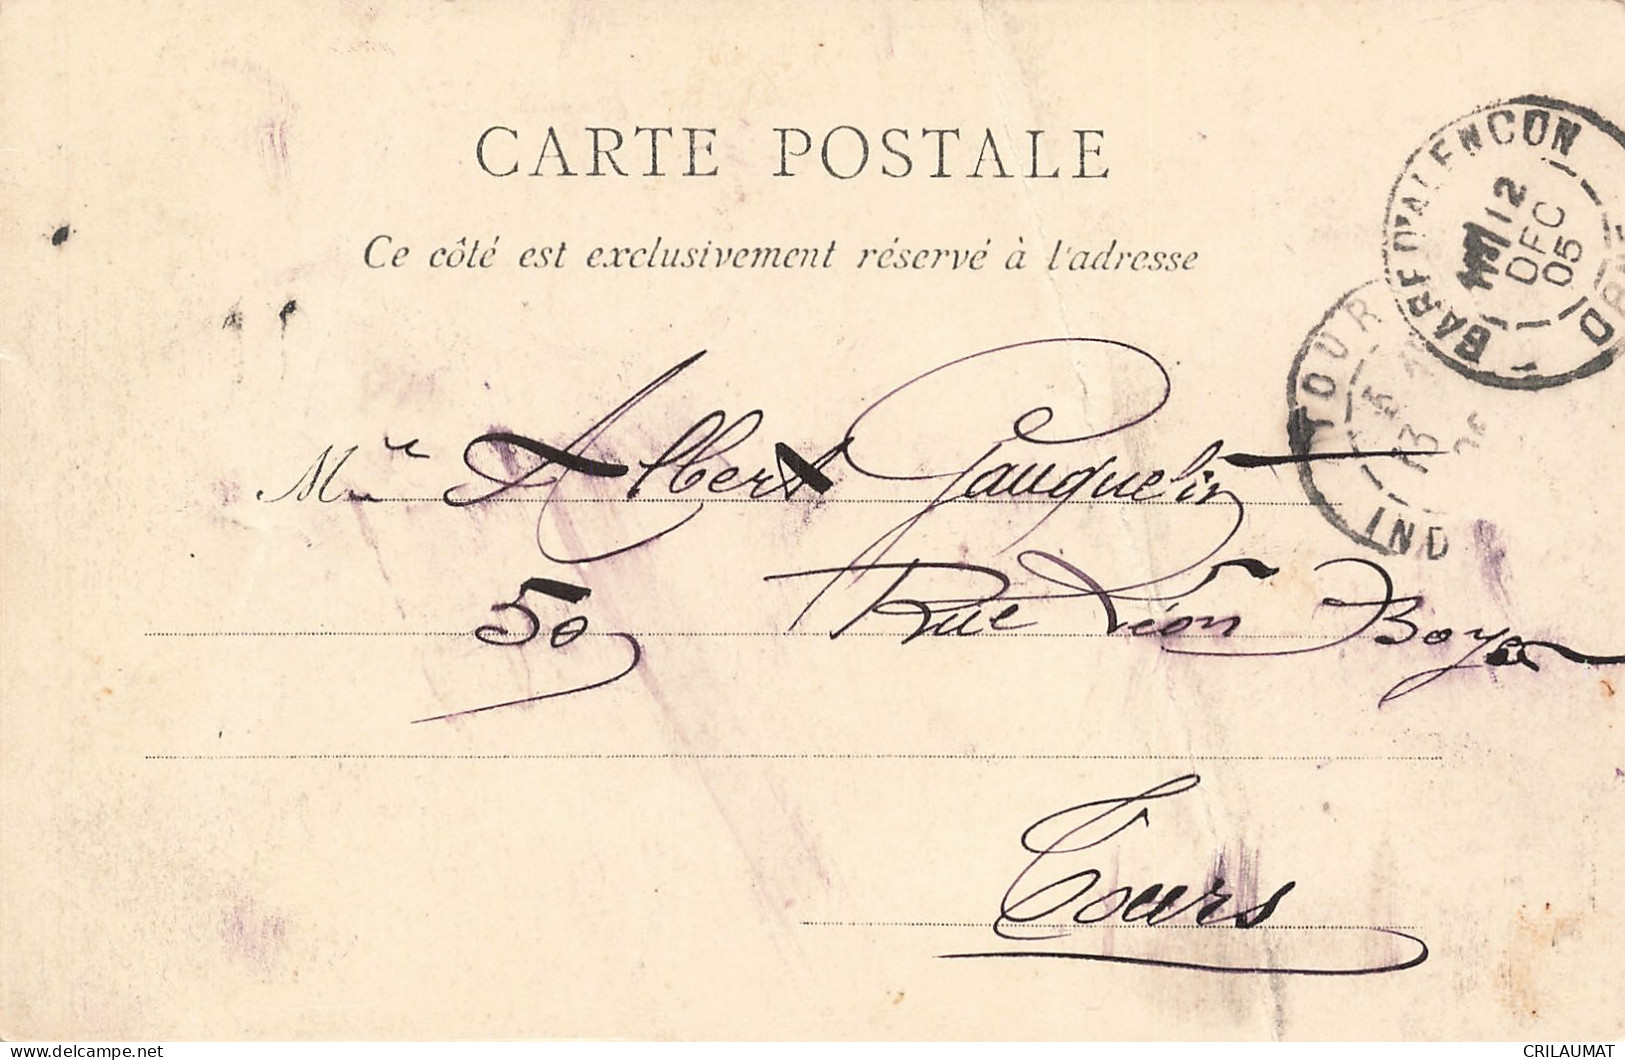 CARTE POSTALE
Ce côté est exclusivement réservé à l'adresse
Albert Gauquelin
50 Rue Léon Boyer
Tours
GARE D'ALENCON
12
DEC
05
ORNE
TOURS
13
IND
CRILAUMAT